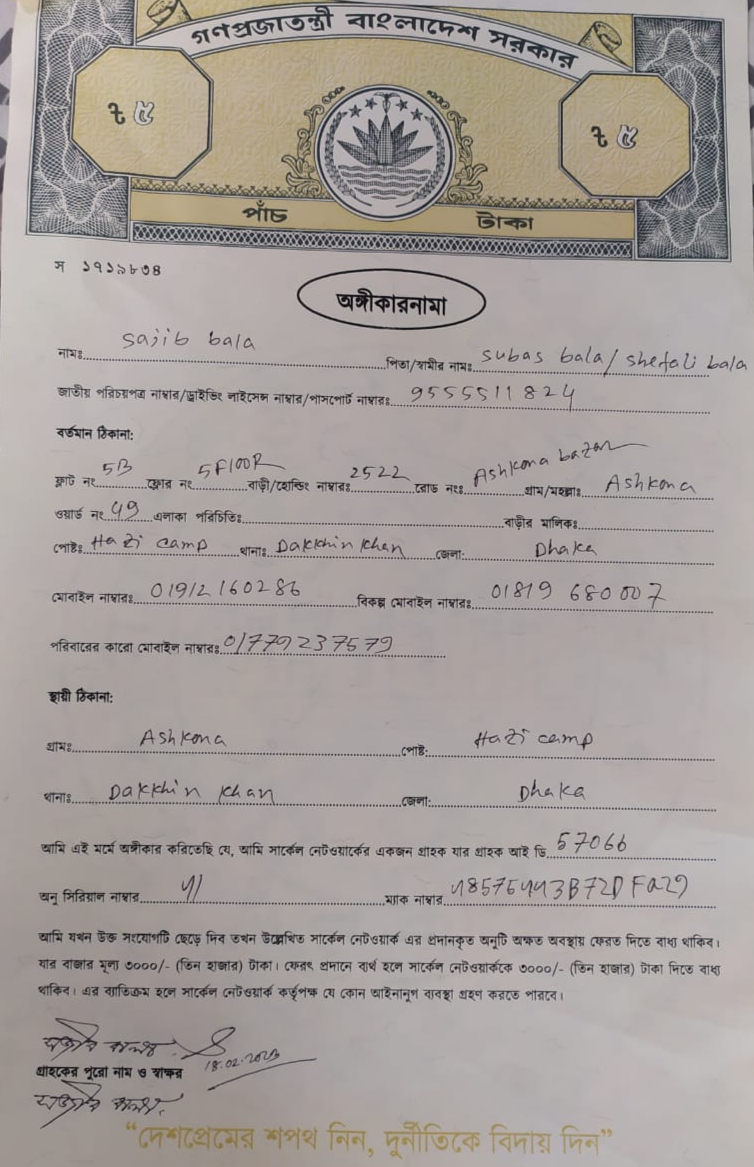 গণপ্রজাতন্ত্রী বাংলাদেশ সরকার
৳ ৫ ৳ ৫
পাঁচ টাকা
স ১৭১৯৮৩৪
অঙ্গীকারনামা
নামঃ Sajib bala পিতা/স্বামীর নামঃ Subas bala / Shefali bala
জাতীয় পরিচয়পত্র নাম্বার/ড্রাইভিং লাইসেন্স নাম্বার/পাসপোর্ট নাম্বারঃ 9555511824
বর্তমান ঠিকানা:
ফ্লাট নং 5B ফ্লোর নং 5FlOOR বাড়ী/হোল্ডিং নাম্বারঃ 2522 রোড নংঃ Ashkona bazar গ্রাম/মহল্লাঃ Ashkona
ওয়ার্ড নং 49 এলাকা পরিচিতিঃ বাড়ীর মালিকঃ
পোষ্টঃ Hazi camp থানাঃ Dakkhin Khan জেলা: Dhaka
মোবাইল নাম্বারঃ 01912160286 বিকল্প মোবাইল নাম্বারঃ 01819 680007
পরিবারের কারো মোবাইল নাম্বারঃ 01779237579
স্থায়ী ঠিকানা:
গ্রামঃ Ashkona পোষ্ট: Hazi camp
থানাঃ Dakkhin Khan জেলা: Dhaka
আমি এই মর্মে অঙ্গীকার করিতেছি যে, আমি সার্কেল নেটওয়ার্কের একজন গ্রাহক যার গ্রাহক আই ডি 57066
অনু সিরিয়াল নাম্বার ম্যাক নাম্বার
আমি যখন উক্ত সংযোগটি ছেড়ে দিব তখন উল্লেখিত সার্কেল নেটওয়ার্ক এর প্রদানকৃত অনুটি অক্ষত অবস্থায় ফেরত দিতে বাধ্য থাকিব।
যার বাজার মূল্য ৩০০০/- (তিন হাজার) টাকা। ফেরৎ প্রদানে ব্যর্থ হলে সার্কেল নেটওয়ার্ককে ৩০০০/- (তিন হাজার) টাকা দিতে বাধ্য
থাকিব। এর ব্যতিক্রম হলে সার্কেল নেটওয়ার্ক কর্তৃপক্ষ যে কোন আইনানুগ ব্যবস্থা গ্রহণ করতে পারবে।
18.02.2023
গ্রাহকের পুরো নাম ও স্বাক্ষর
“দেশপ্রেমের শপথ নিন, দুর্নীতিকে বিদায় দিন”